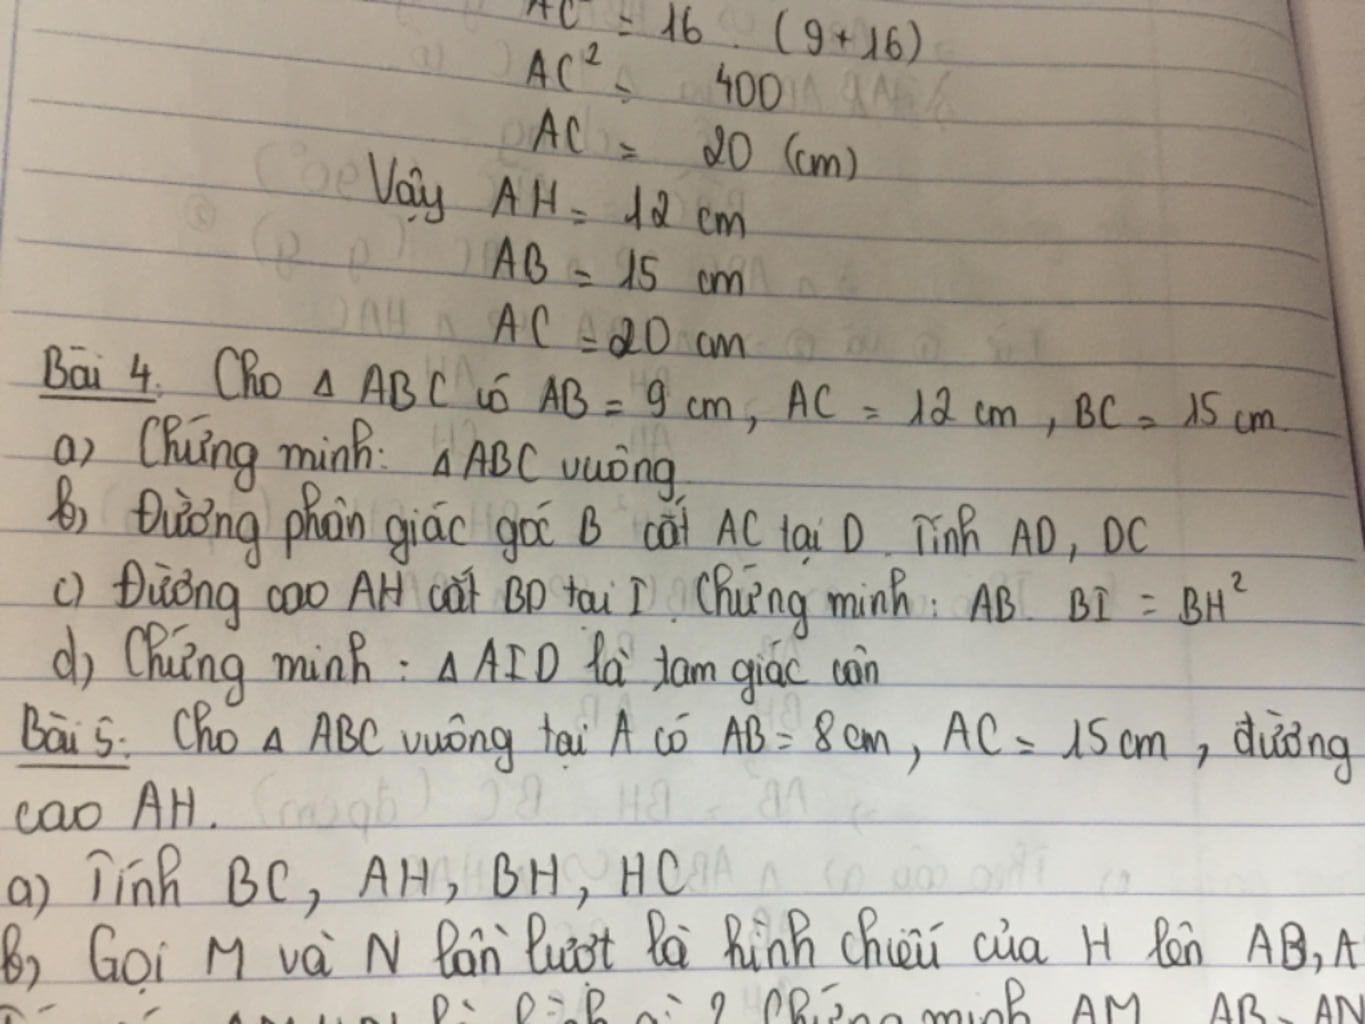 AC² = 16 . (9+16)
AC² = 400
AC = 20 (cm)
Vậy AH = 12 cm
AB = 15 cm
AC = 20 cm
Bài 4. Cho Δ ABC có AB = 9 cm, AC = 12 cm, BC = 15 cm.
a) Chứng minh: Δ ABC vuông
b) Đường phân giác góc B cắt AC tại D. Tính AD, DC
c) Đường cao AH cắt BD tại I. Chứng minh: AB. BI = BH²
d) Chứng minh: Δ AID là tam giác cân
Bài 5: Cho Δ ABC vuông tại A có AB = 8 cm, AC = 15 cm, đường
cao AH.
a) Tính BC, AH, BH, HC
b) Gọi M và N lần lượt là hình chiếu của H lên AB, A
là hình gì? Chứng minh AM. AB = AN